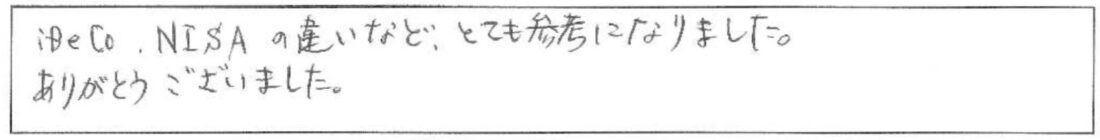 iDeCo、NISAの違いなど、とても参考になりました。
ありがとうございました。